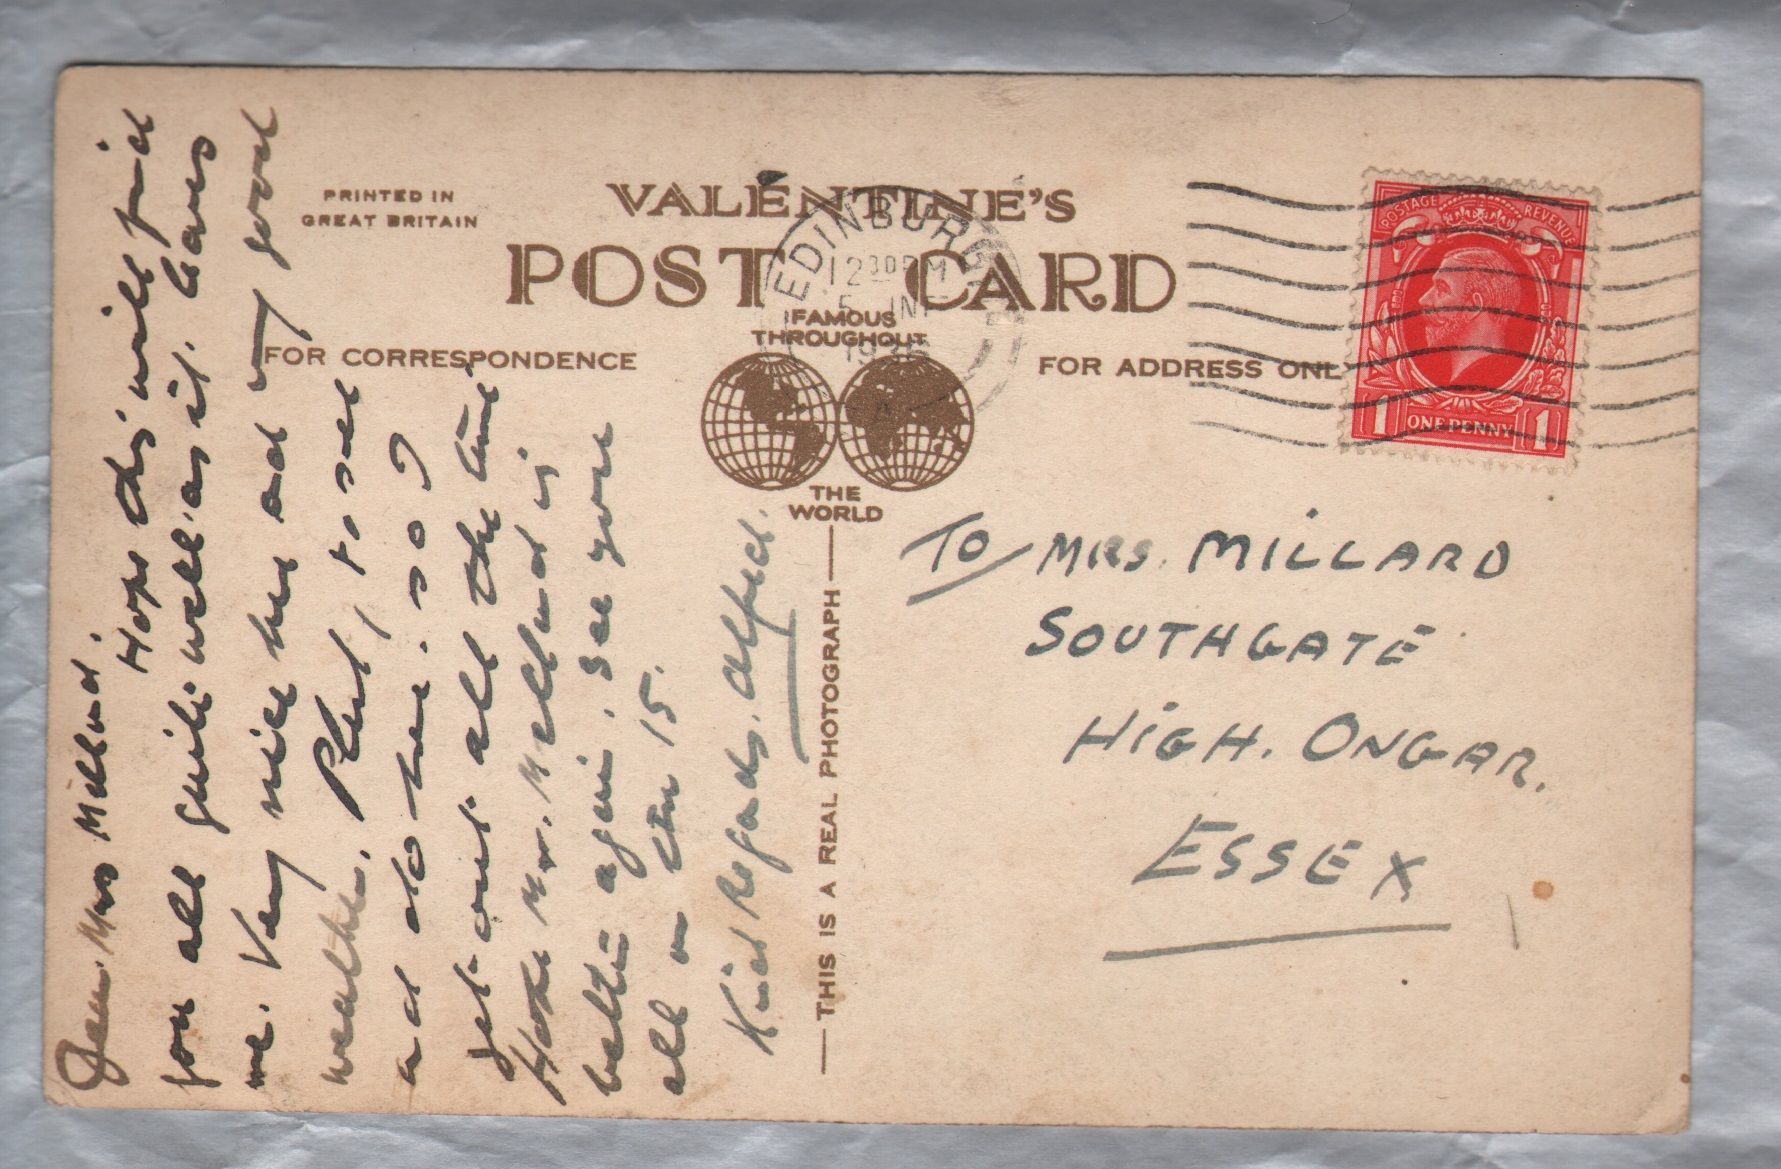 PRINTED IN
GREAT BRITAIN
VALENTINE'S
POST CARD
FAMOUS
THROUGHOUT
THE
WORLD
FOR CORRESPONDENCE
FOR ADDRESS ONL
EDINBURGH
12 30PM
5 JNE
19
POSTAGE REVENUE
1 ONE PENNY 1
Dear Mrs Millard.
Hope this will find
you all quite well as it leaves
me. Very nice here and very good
weather. Plenty to see
and do here. so I
get out all the time
Hope Mr. Millard is
better again. See you
all on the 15.
Kind Regards. Alfred.
THIS IS A REAL PHOTOGRAPH
TO MRS. MILLARD
SOUTHGATE
HIGH. ONGAR.
ESSEX